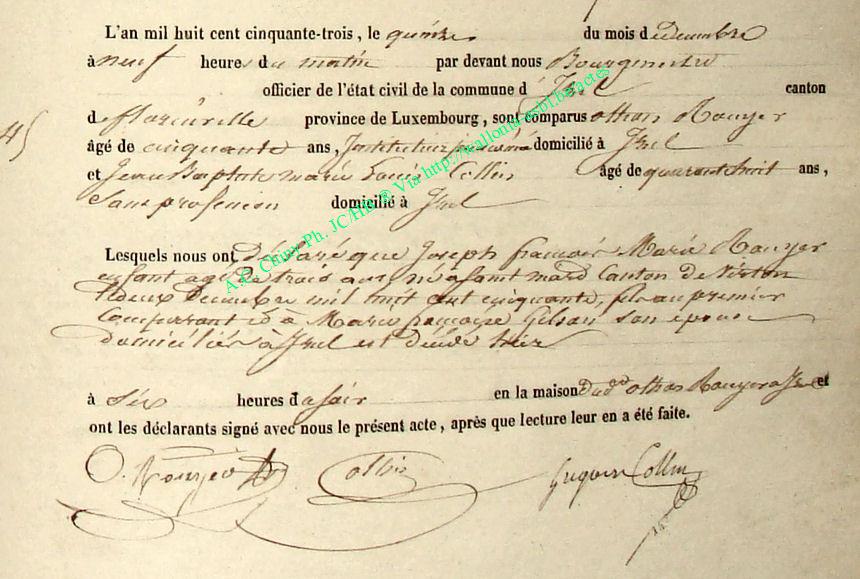 L'an mil huit cent cinquante-trois, le quinze du mois de decembre
à neuf heures du matin par devant nous Bourgmestre
officier de l'état civil de la commune d'Izel canton
de florenville province de Luxembourg, sont comparus othon Rouyer
45
âgé de cinquante ans, Instituteur domicilié à Izel
et Jean Baptiste marie Louis Collin âgé de quarante huit ans,
sans profession domicilié à Izel
Lesquels nous ont déclaré que Joseph françois Marie Rouyer
enfant agé de trois ans, né a saint mard Canton de Virton
le deux Decembre mil huit cent cinquante, fils au premier
Comparrant et à Marie françoise Gilson son épouse
domiciliés à Izel est décédé hier
à six heures du soir en la maison dud othon Rouyer a Izel et
ont les déclarants signé avec nous le présent acte, après que lecture leur en a été faite.
O. Rouyer Collin Collin
A.L. Chiny Ph. JC/HB ® Via http://wallonia.ebl.be/actes